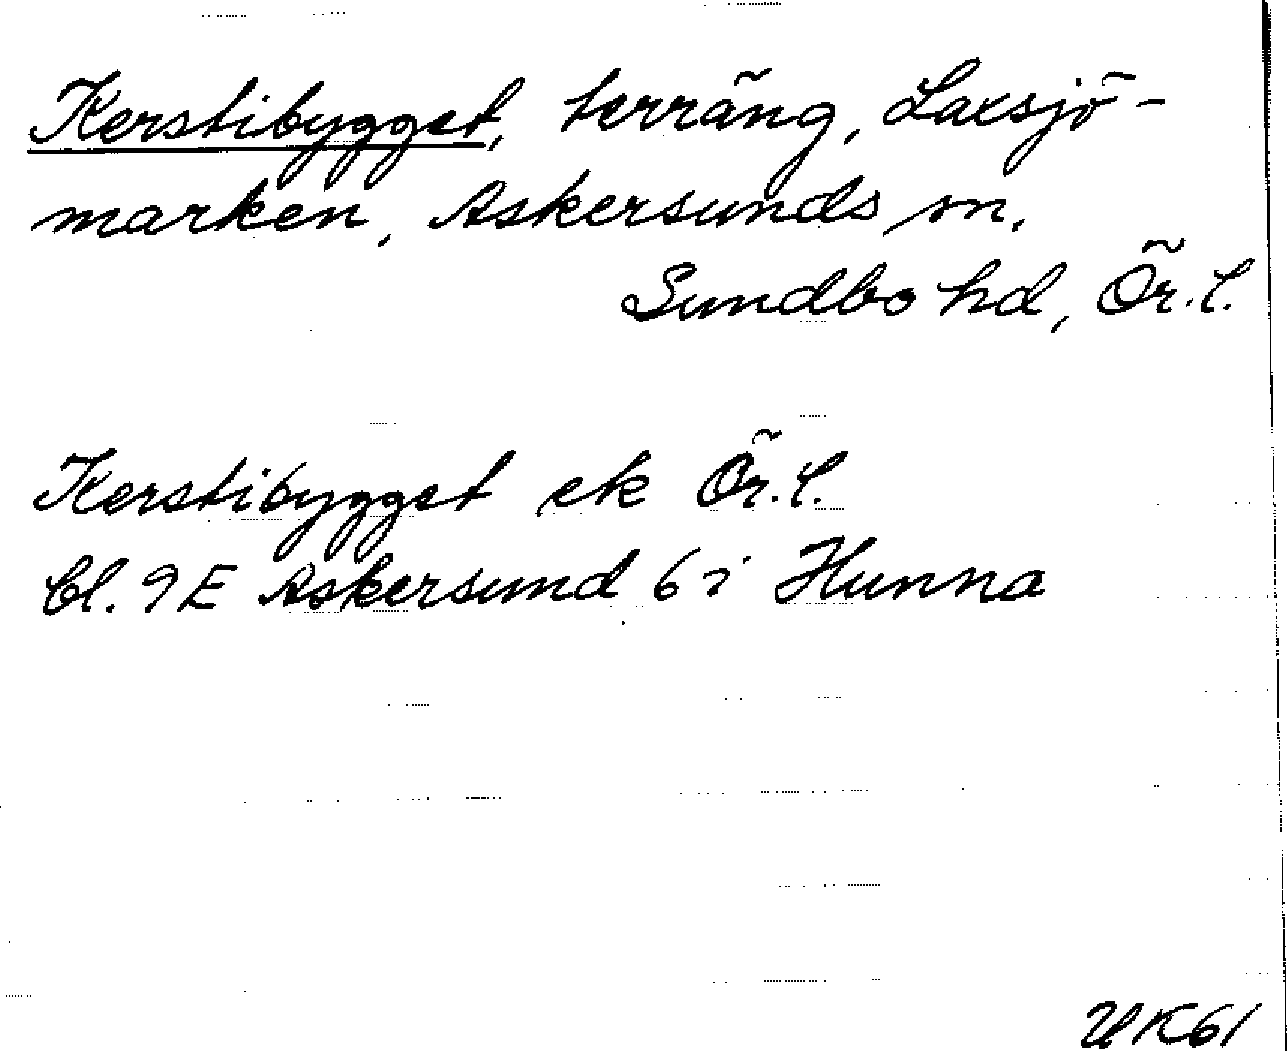 Kerstibygget, terräng, Laxsjö-
marken, Askersunds sn,
Sundbo hd, Ör. l.
Kerstibygget ek Ör. l.
bl. 9E Askersund 6 i Hunna
UK61